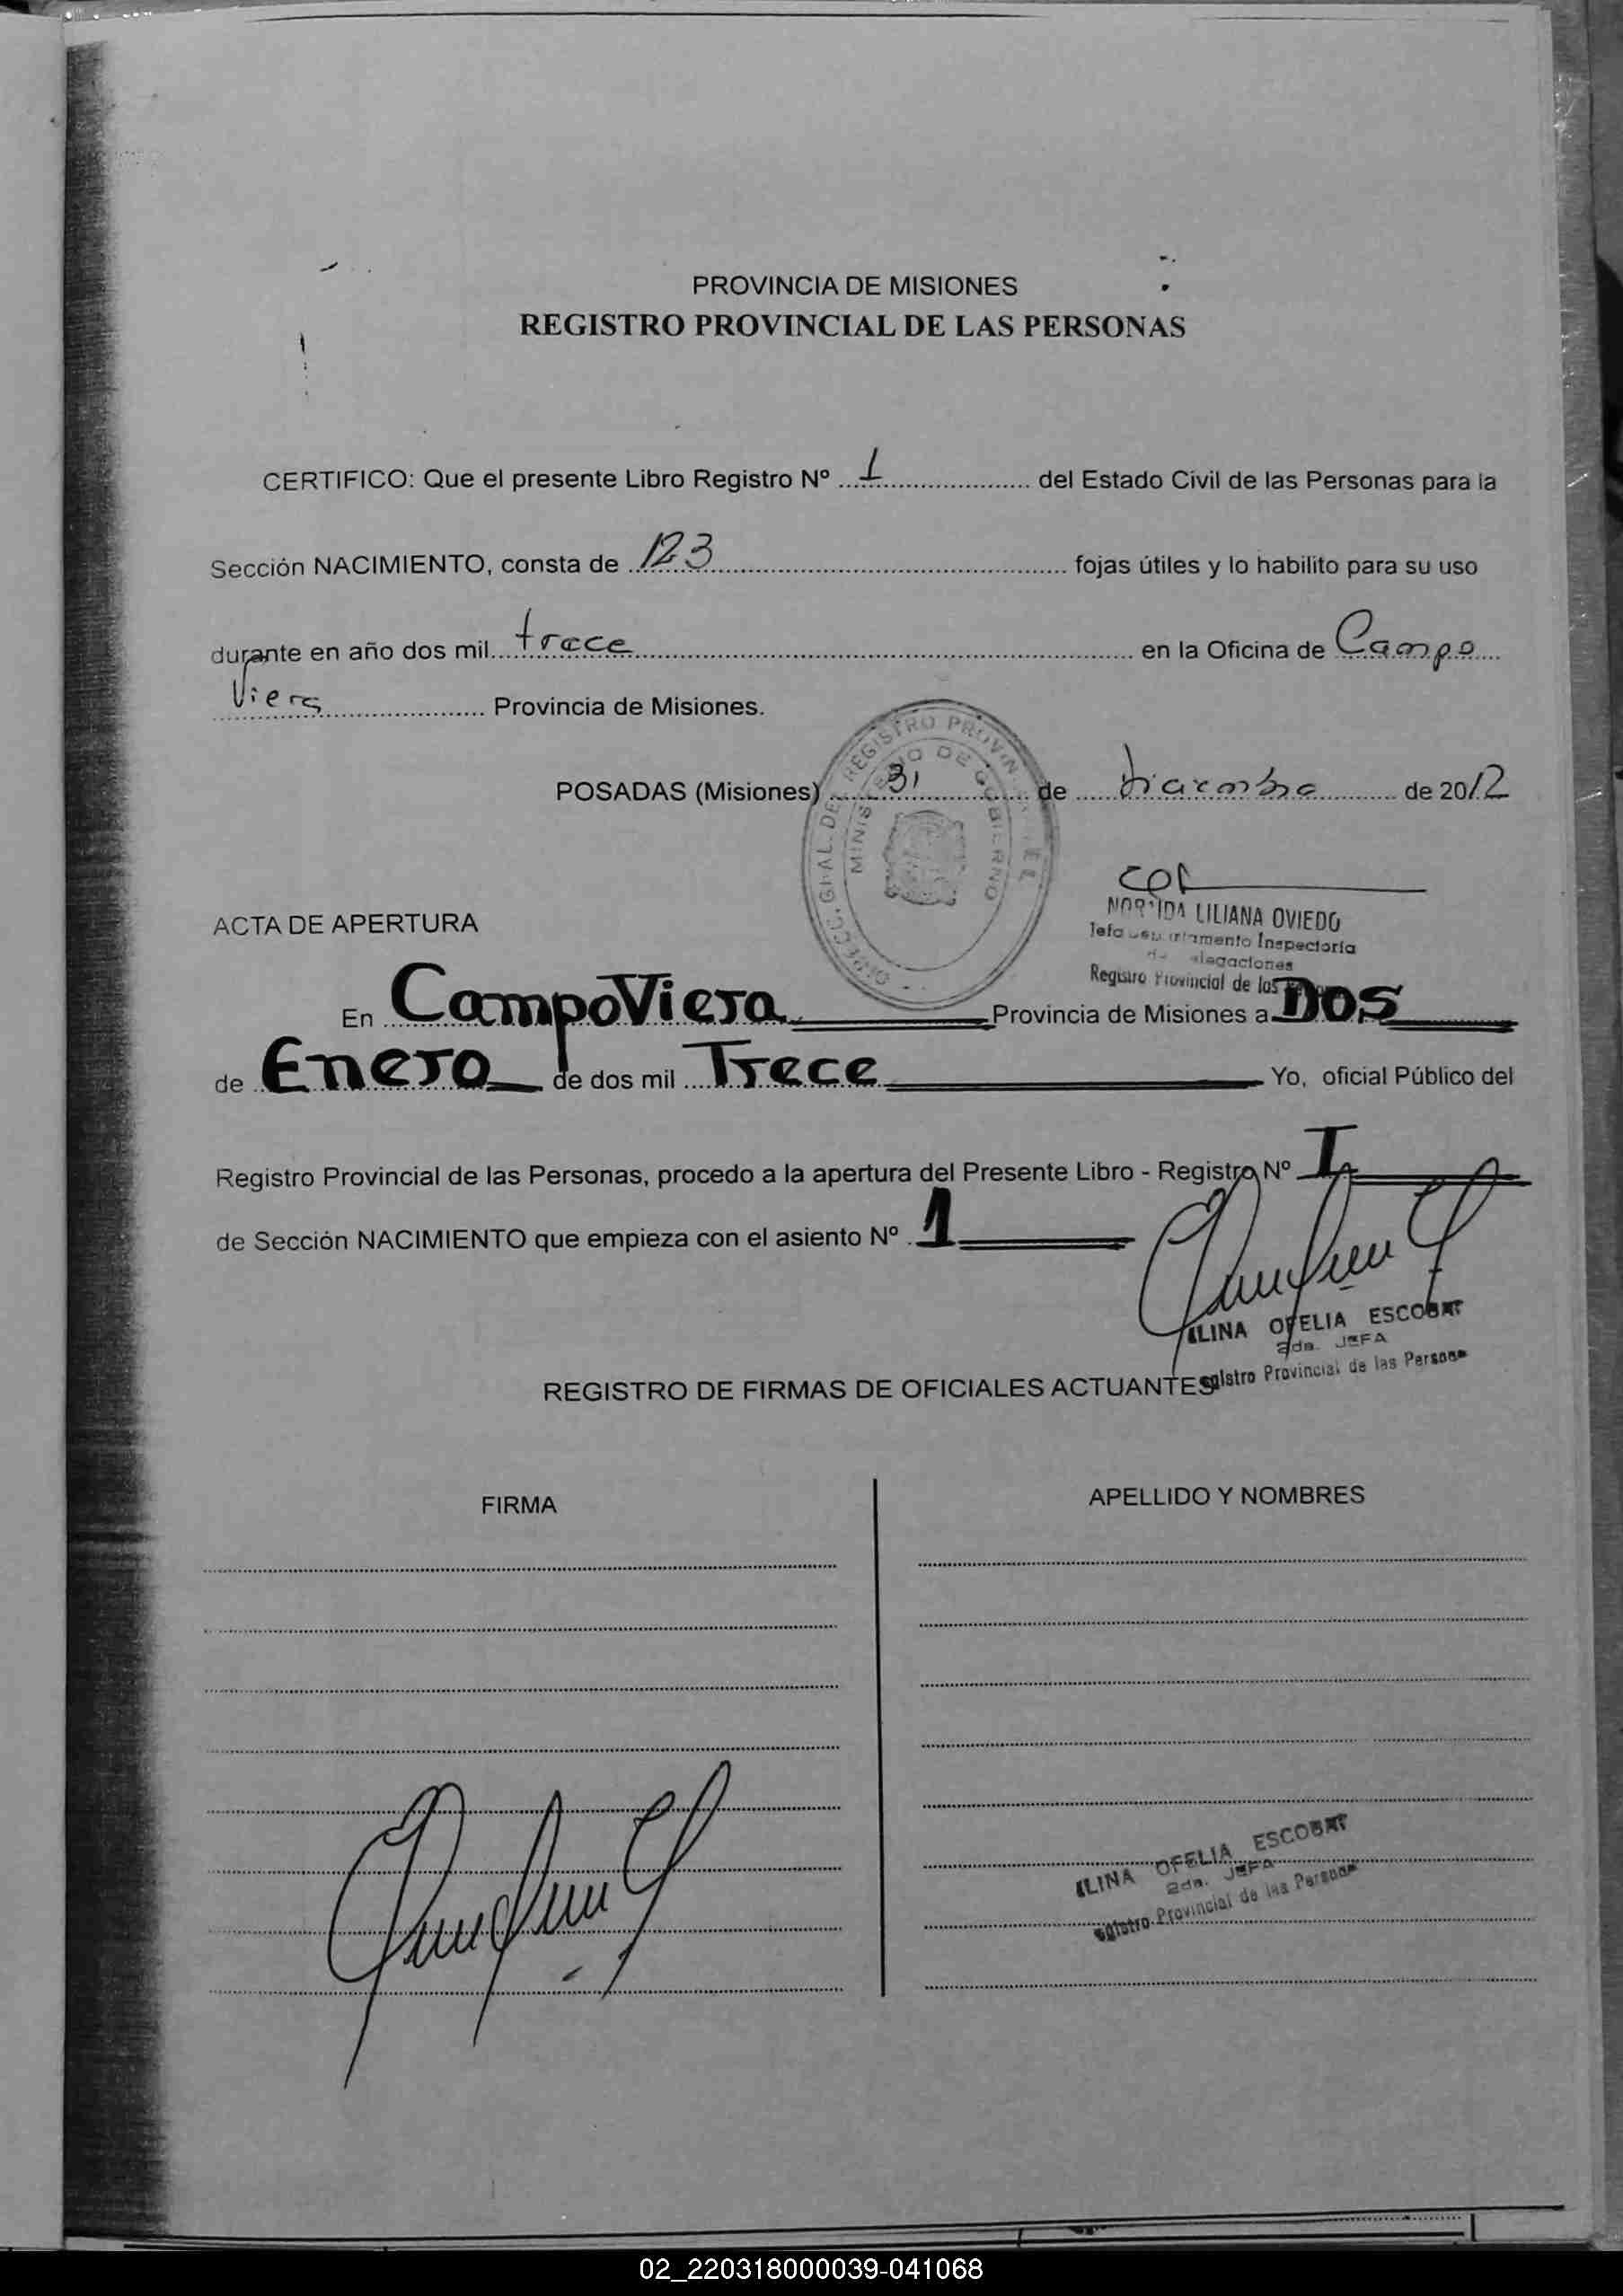 PROVINCIA DE MISIONES
REGISTRO PROVINCIAL DE LAS PERSONAS
CERTIFICO: Que el presente Libro Registro Nº 1 del Estado Civil de las Personas para la
Sección NACIMIENTO, consta de 123 fojas útiles y lo habilito para su uso
durante en año dos mil trece en la Oficina de Campo
Viera Provincia de Misiones.
POSADAS (Misiones) 31 de diciembre de 2012
MINISTERIO DE GOBIERNO
LILIANA OVIEDO
Inspectoría
Registro Provincial de las
ACTA DE APERTURA
En Campo Viera Provincia de Misiones a Dos
de Enero de dos mil Trece Yo, oficial Público del
Registro Provincial de las Personas, procedo a la apertura del Presente Libro - Registro Nº I
de Sección NACIMIENTO que empieza con el asiento Nº 1
LINA OFELIA ESCOBAR
2da. JEFA
Provincial de las Persona
REGISTRO DE FIRMAS DE OFICIALES ACTUANTES
FIRMA
APELLIDO Y NOMBRES
LINA OFELIA ESCOBAR
2da. JEFA
Provincial de las Persona
02_220318000039-041068